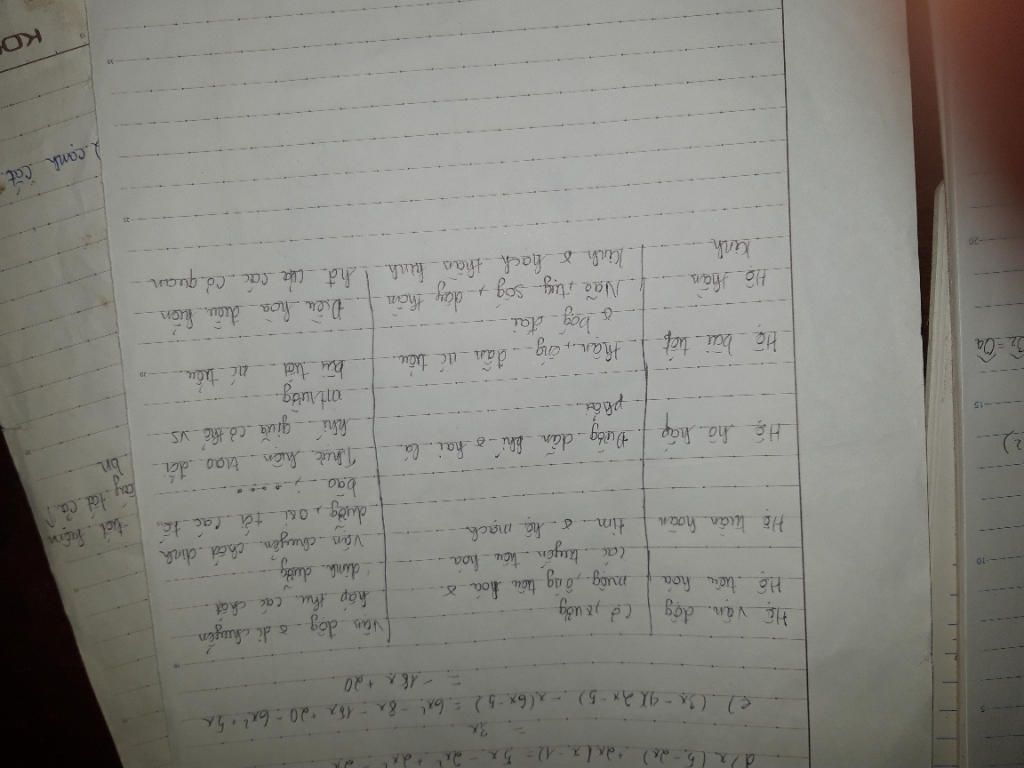 d) x(5-2x) + 2x(x-1) = 5x - 2x² + 2x² - 2x
= 3x
e) (3x-4)(2x-5) - x(6x-5) = 6x² - 8x - 15x + 20 - 6x² + 5x
= -18x + 20
Hệ vận động
Cơ, xương
Vận động & di chuyển
Hệ tiêu hóa
miệng, ống tiêu hóa &
các tuyến tiêu hóa
hấp thu các chất
dinh dưỡng
Hệ tuần hoàn
tim & hệ mạch
Vận chuyển chất dinh
dưỡng, oxi tới các tế
bào, .....
Hệ hô hấp
Đường dẫn khí & hai lá
phổi
Thực hiện trao đổi
khí giữa cơ thể vs
mtrường
Hệ bài tiết
thận, ống dẫn nc tiểu
& bóng đái
bài tiết nc tiểu
Hệ thần
kinh
Não, tuỷ sống, dây thần
kinh & hạch thần kinh
Điều hòa điều khiển
hđ của các cơ quan
tiết kiệm
tất cả
bn
2 cạnh cắt
KDN